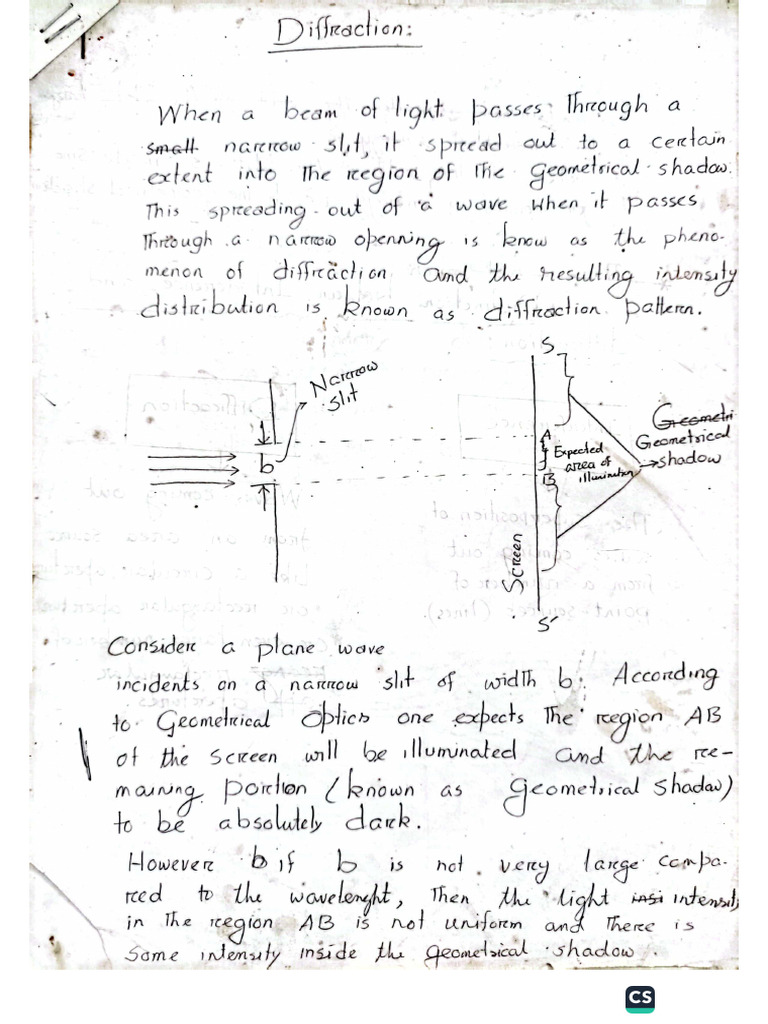 Diffraction:
When a beam of light passes Through a
small narrow slit, it spread out to a certain
extent into The region of The Geometrical shadow.
This spreading out of a wave when it passes
Through a narrow openning is know as the pheno-
menon of diffraction and the resulting intensity
distribution is known as diffraction pattern.
S
Narrow
slit
Geometri
A
Geometrical
Expected
b
area of
shadow
illumination
B
Screen
S'
Consider a plane wave
incidents on a narrow slit of width b. According
to Geometrical Optics one expects The region AB
of the screen will be illuminated and the re-
maining portion (known as geometrical shadow)
to be absolutely dark.
However b if b is not very large compa-
red to the wavelenght, Then the light insi intensity
in The region AB is not uniform and There is
Some intensity inside the geometrical shadow.
CS